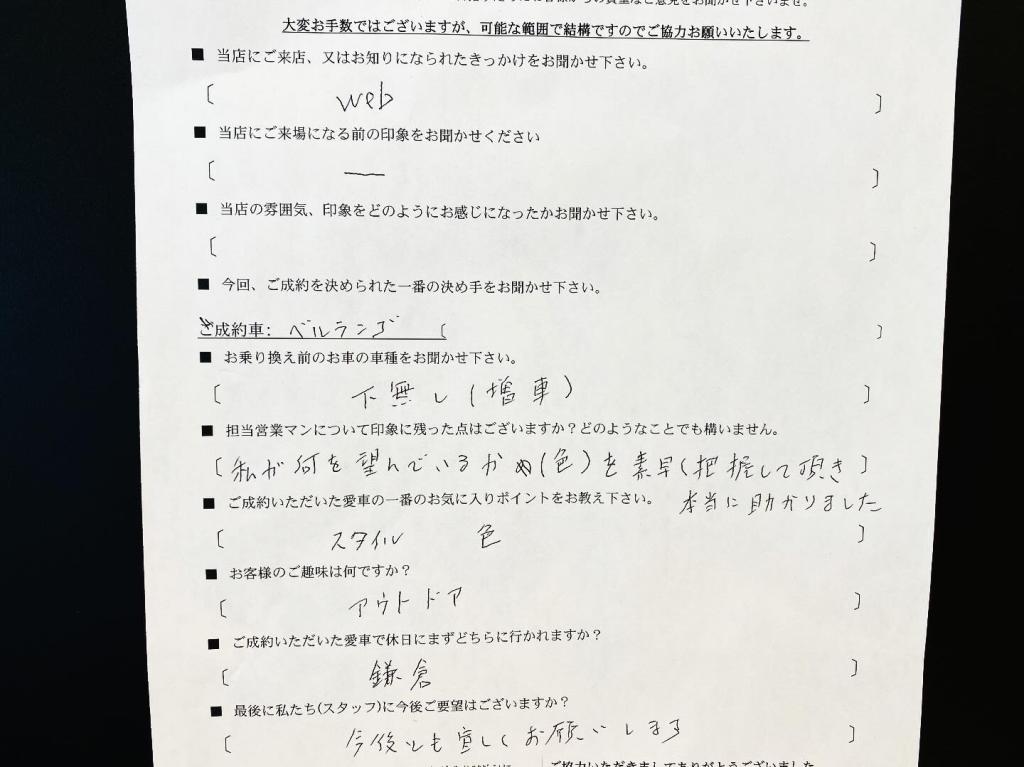 大変お手数ではございますが、可能な範囲で結構ですのでご協力お願いいたします。
■ 当店にご来店、又はお知りになられたきっかけをお聞かせ下さい。
〔 web 〕
■ 当店にご来場になる前の印象をお聞かせください
〔 ー 〕
■ 当店の雰囲気、印象をどのようにお感じになったかお聞かせ下さい。
〔 〕
■ 今回、ご成約を決められた一番の決め手をお聞かせ下さい。
ご成約車: ベルランゴ 〔 〕
■ お乗り換え前のお車の車種をお聞かせ下さい。
〔 下無し(増車) 〕
■ 担当営業マンについて印象に残った点はございますか?どのようなことでも構いません。
〔 私が何を望んでいるか(色)を素早く把握して頂き 〕
■ ご成約いただいた愛車の一番のお気に入りポイントをお教え下さい。 本当に助かりました
〔 スタイル 色 〕
■ お客様のご趣味は何ですか?
〔 アウトドア 〕
■ ご成約いただいた愛車で休日にまずどちらに行かれますか?
〔 鎌倉 〕
■ 最後に私たち(スタッフ)に今後ご要望はございますか?
〔 今後とも宜しくお願いします 〕
ご協力いただきましてありがとうございました